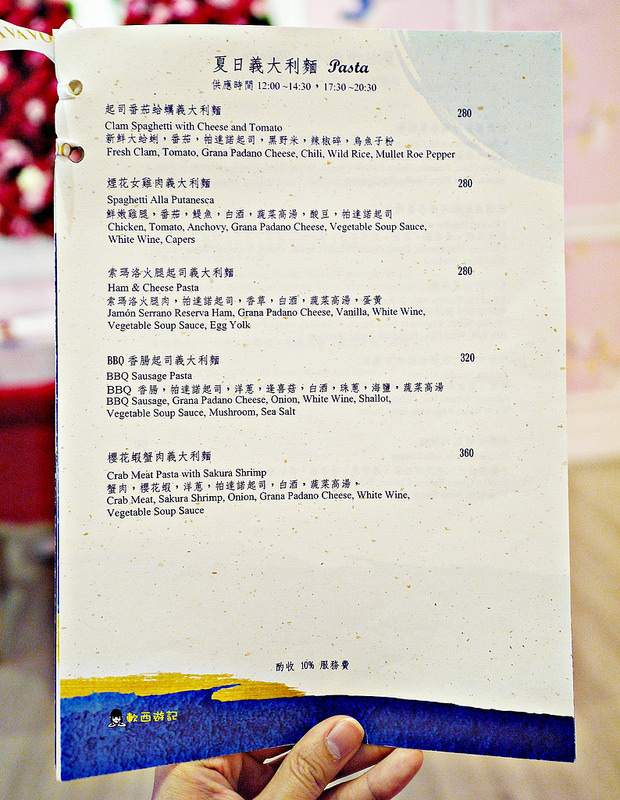 夏日義大利麵 Pasta
供應時間 12:00 ~14:30，17:30 ~20:30
起司番茄蛤蠣義大利麵 280
Clam Spaghetti with Cheese and Tomato
新鮮大蛤蜊，番茄，帕達諾起司，黑野米，辣椒碎，烏魚子粉
Fresh Clam, Tomato, Grana Padano Cheese, Chili, Wild Rice, Mullet Roe Pepper
煙花女雞肉義大利麵 280
Spaghetti Alla Putanesca
鮮嫩雞腿，番茄，鯷魚，白酒，蔬菜高湯，酸豆，帕達諾起司
Chicken, Tomato, Anchovy, Grana Padano Cheese, Vegetable Soup Sauce,
White Wine, Capers
索瑪洛火腿起司義大利麵 280
Ham & Cheese Pasta
索瑪洛火腿肉，帕達諾起司，香草，白酒，蔬菜高湯，蛋黃
Jamón Serrano Reserva Ham, Grana Padano Cheese, Vanilla, White Wine,
Vegetable Soup Sauce, Egg Yolk
BBQ 香腸起司義大利麵 320
BBQ Sausage Pasta
BBQ 香腸，帕達諾起司，洋蔥，逢喜菇，白酒，珠蔥，海鹽，蔬菜高湯
BBQ Sausage, Grana Padano Cheese, Onion, White Wine, Shallot,
Vegetable Soup Sauce, Mushroom, Sea Salt
櫻花蝦蟹肉義大利麵 360
Crab Meat Pasta with Sakura Shrimp
蟹肉，櫻花蝦，洋蔥，帕達諾起司，白酒，蔬菜高湯，
Crab Meat, Sakura Shrimp, Onion, Grana Padano Cheese, White Wine,
Vegetable Soup Sauce
酌收 10% 服務費
軟西遊記